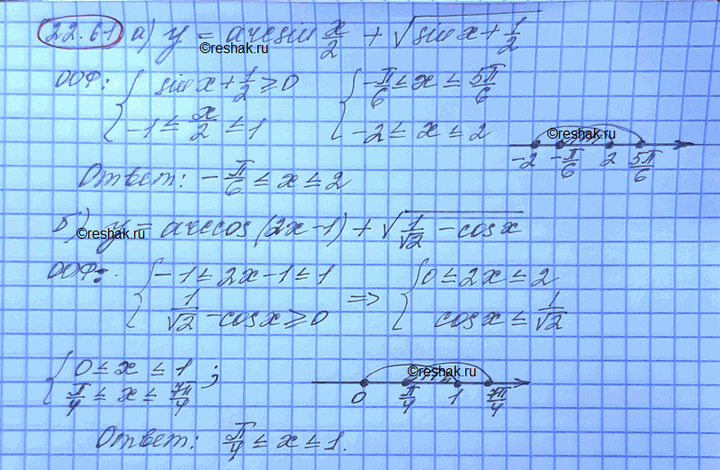 22.61 а) y = arcsin x/2 + √(sin x + 1/2)
©reshak.ru
ООФ: { sin x + 1/2 ≥ 0 { -π/6 ≤ x ≤ 5π/6
-1 ≤ x/2 ≤ 1 -2 ≤ x ≤ 2
©reshak.ru
-2 -π/6 2 5π/6
Ответ: -π/6 ≤ x ≤ 2
б) y = arccos(2x-1) + √(1/√2 - cos x)
©reshak.ru
ООФ: { -1 ≤ 2x-1 ≤ 1 => { 0 ≤ 2x ≤ 2
1/√2 - cos x ≥ 0 cos x ≤ 1/√2
{ 0 ≤ x ≤ 1
π/4 ≤ x ≤ 7π/4 ;
©reshak.ru
0 π/4 1 7π/4
Ответ: π/4 ≤ x ≤ 1.